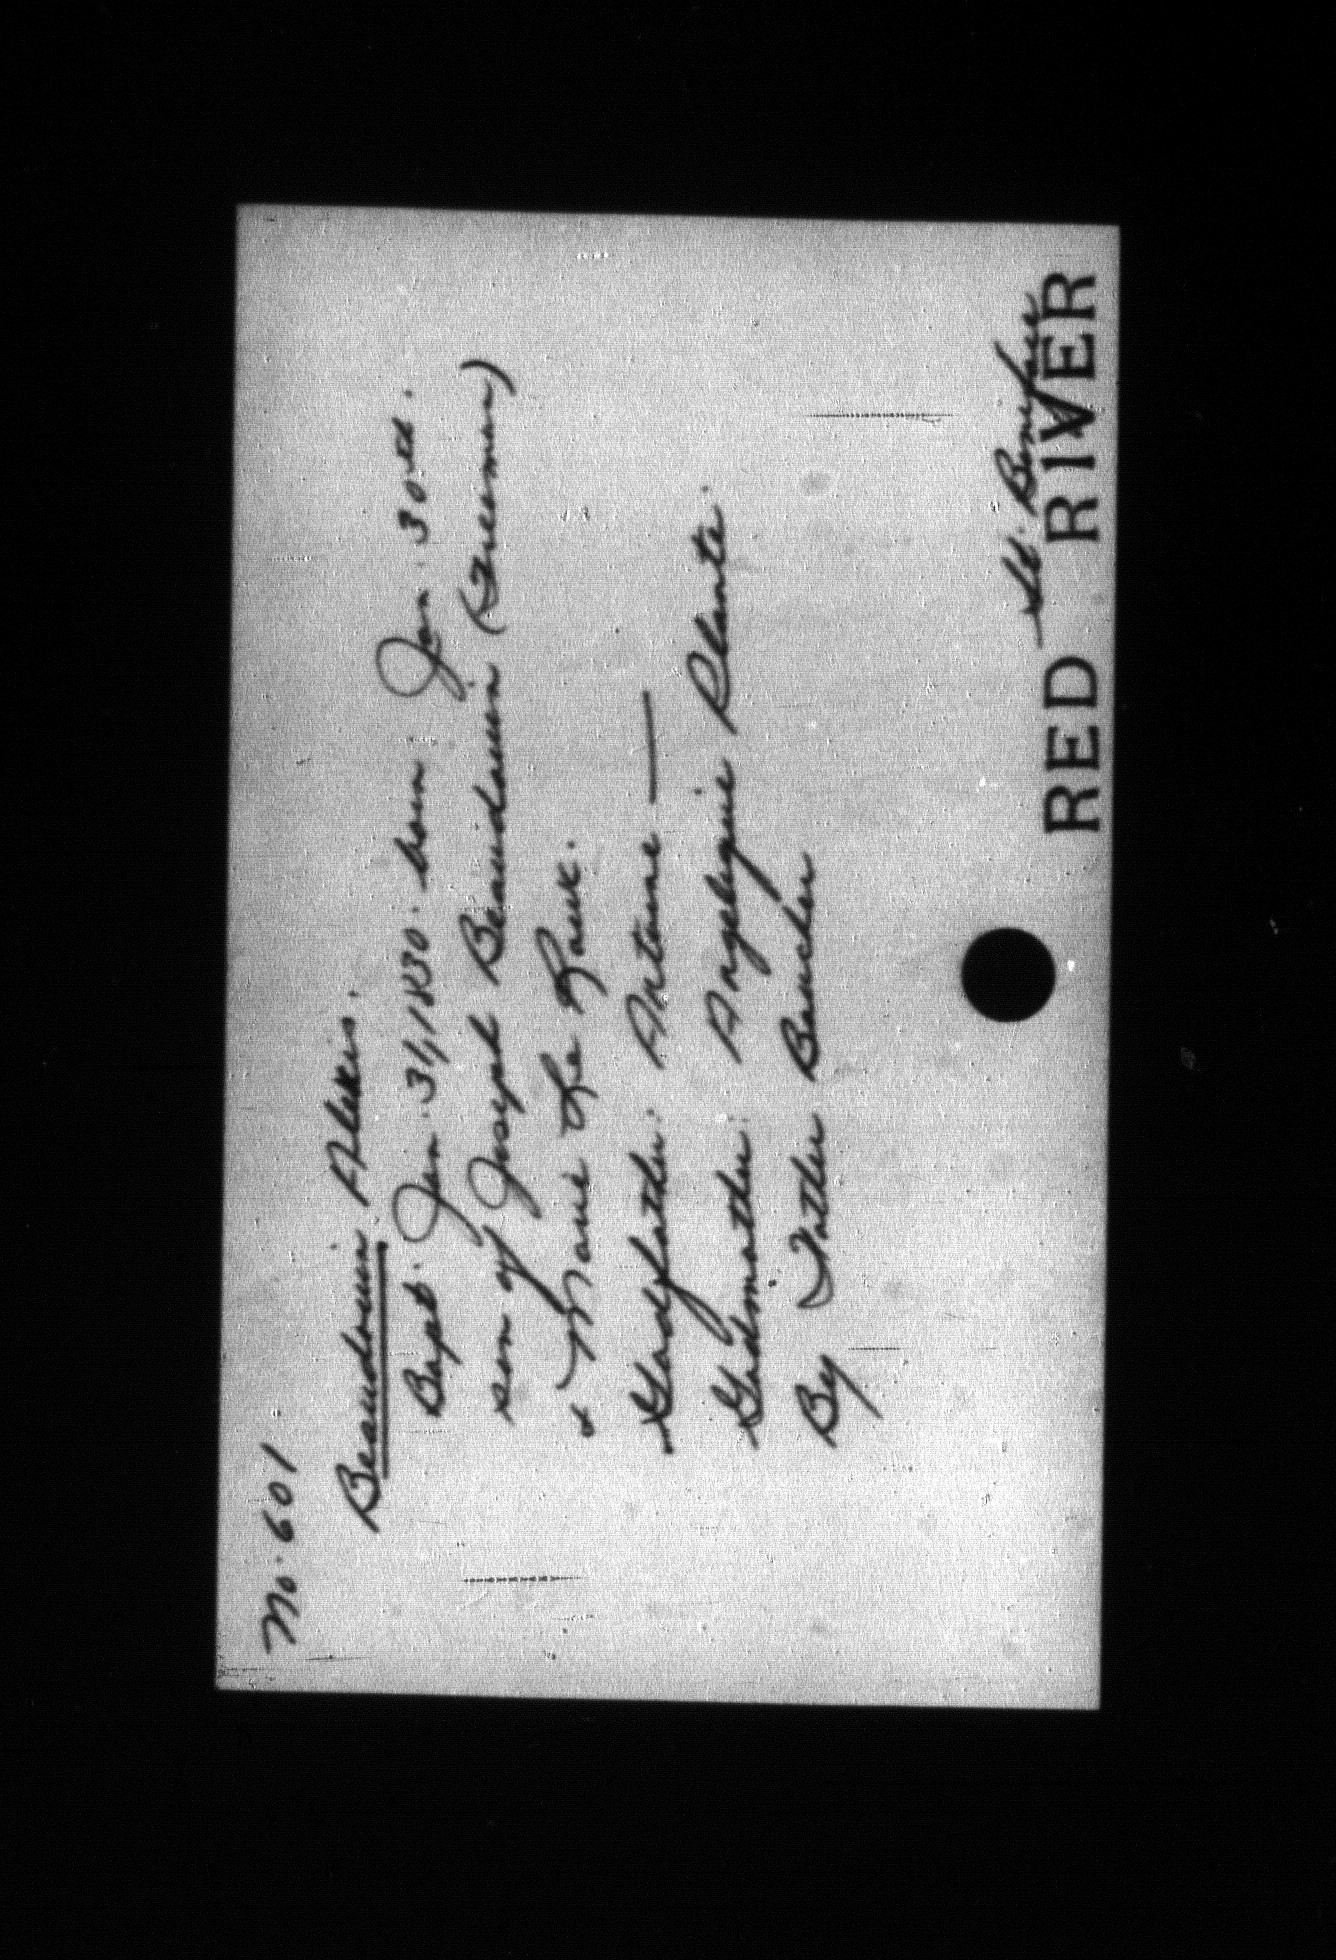 No. 601
Beaudouin Alexis.
Bapt. Jan. 31, 1830. born Jan. 30th.
son of Joseph Beaudouin (Freeman)
& Marie Le Roux.
Godfather: Antoine —
Godmother: Angelique Plante.
By Father Boucher
St. Boniface
RED RIVER